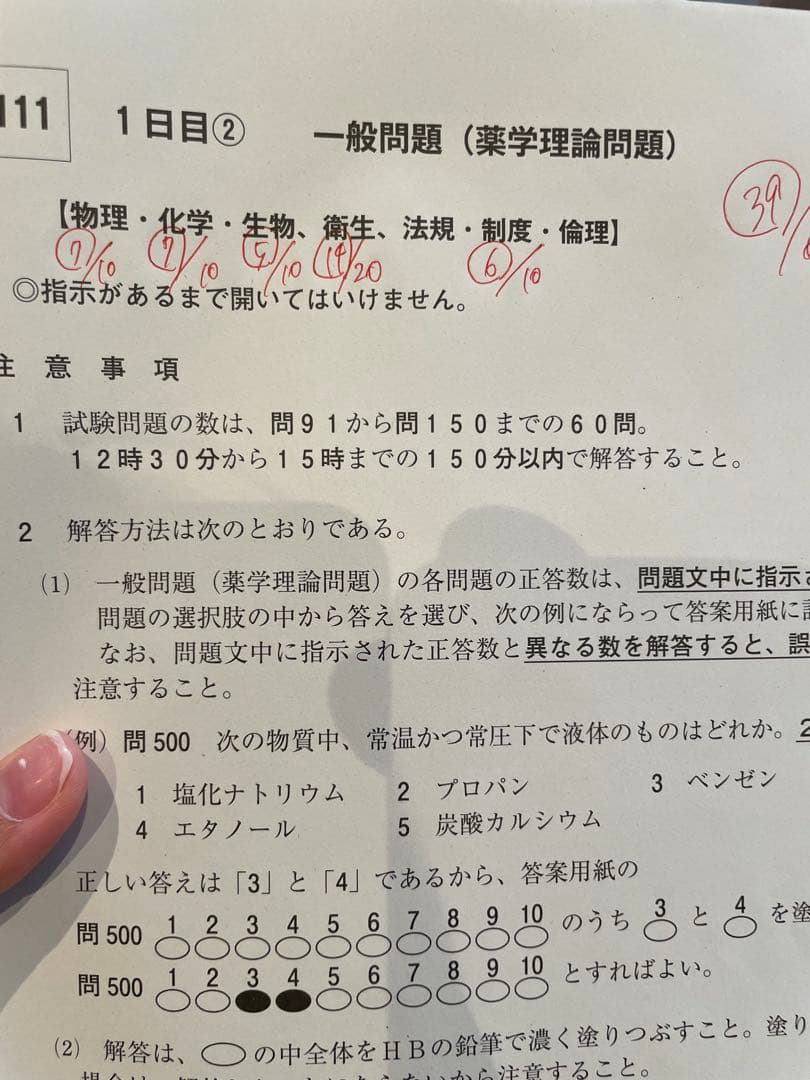 111 1日目② 一般問題(薬学理論問題)
【物理・化学・生物、衛生、法規・制度・倫理】
⑦/10 ⑦/10 ⑤/10 ⑭/20 ⑥/10 ㊴/
◎指示があるまで開いてはいけません。
注意事項
1 試験問題の数は、問91から問150までの60問。
12時30分から15時までの150分以内で解答すること。
2 解答方法は次のとおりである。
(1) 一般問題(薬学理論問題)の各問題の正答数は、問題文中に指示さ
問題の選択肢の中から答えを選び、次の例にならって答案用紙に
なお、問題文中に指示された正答数と異なる数を解答すると、誤
注意すること。
(例) 問500 次の物質中、常温かつ常圧下で液体のものはどれか。2
1 塩化ナトリウム 2 プロパン 3 ベンゼン
4 エタノール 5 炭酸カルシウム
正しい答えは「3」と「4」であるから、答案用紙の
問500 1 2 3 4 5 6 7 8 9 10 のうち 3 と 4 を塗
問500 1 2 3 4 5 6 7 8 9 10 とすればよい。
(2) 解答は、◯の中全体をHBの鉛筆で濃く塗りつぶすこと。塗り
いから注意すること。